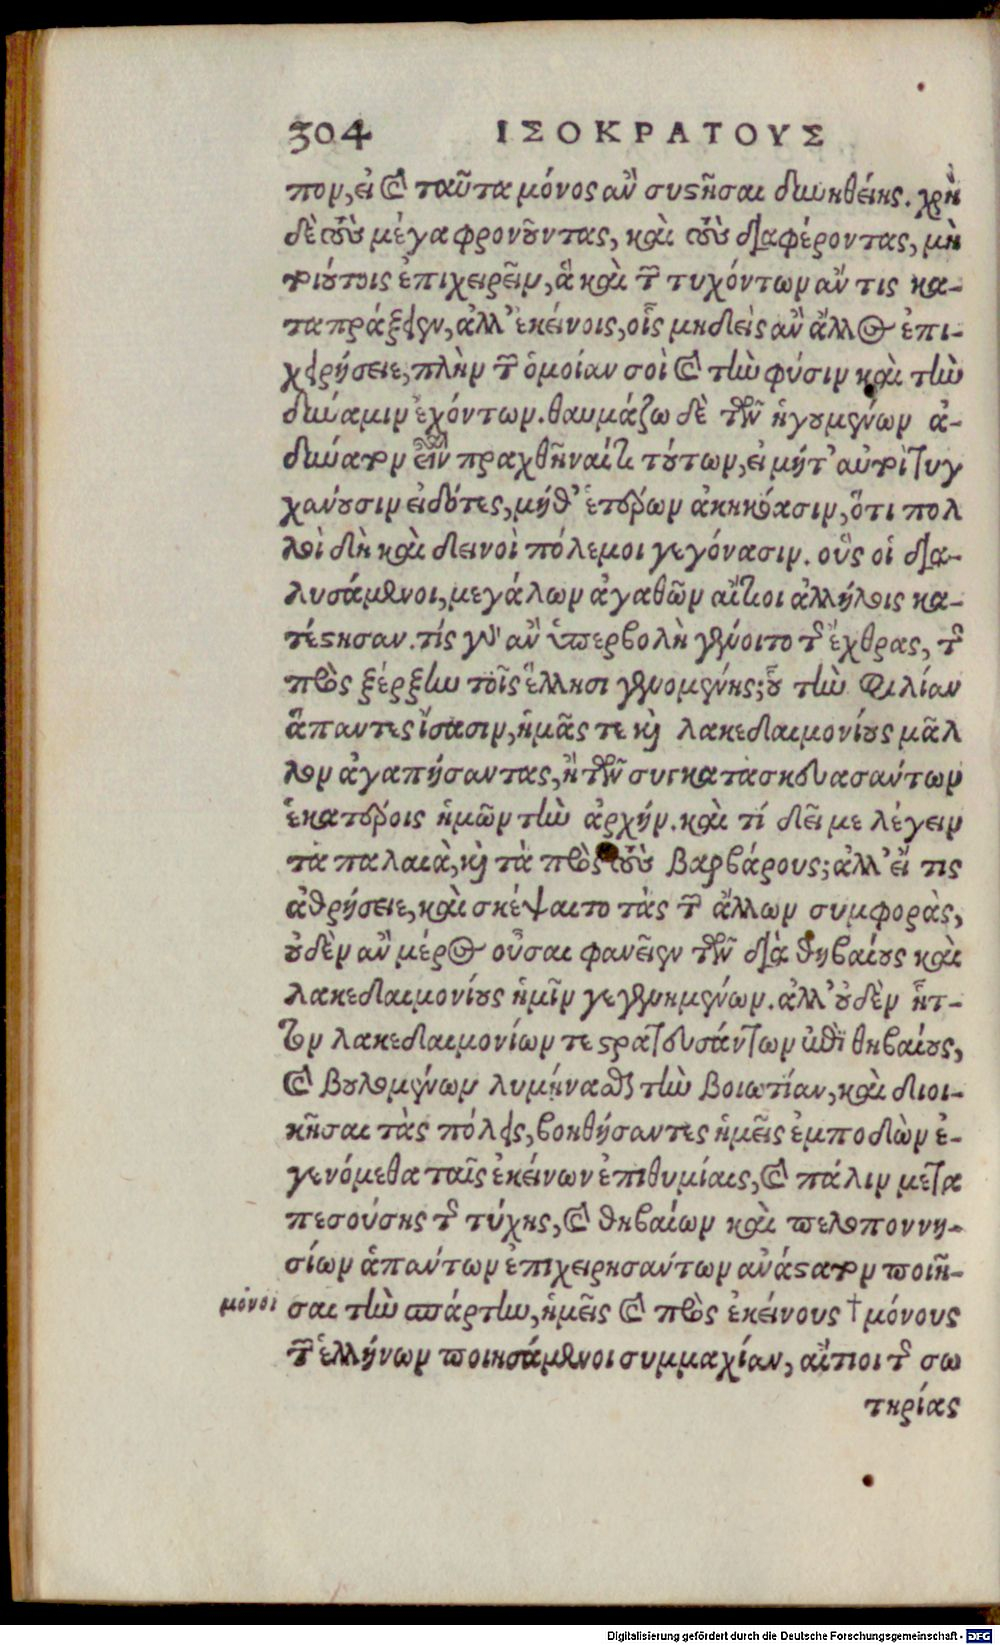 304 ΙΣΟΚΡΑΤΟΥΣ
πον, εἰ καὶ ταῦτα μόνος ἂν συστῆσαι δυνηθείης. χρὴ
δὲ τοὺς μέγα φρονοῦντας, καὶ τοὺς διαφέροντας, μὴ
τοιούτοις ἐπιχειρεῖν, ἃ καὶ τῶν τυχόντων ἄν τις κα-
ταπράξειεν, ἀλλ' ἐκείνοις, οἷς μηδεὶς ἂν ἄλλος ἐπι-
χειρήσειε, πλὴν τῶν ὁμοίαν σοὶ καὶ τὴν φύσιν καὶ τὴν
δύναμιν ἐχόντων. θαυμάζω δὲ τῶν ἡγουμένων ἀ-
δύνατον εἶναι πραχθῆναί τι τούτων, εἰ μήτ' αὐτοὶ τυγ
χάνουσιν εἰδότες, μήθ' ἑτέρων ἀκηκόασιν, ὅτι πολ
λοὶ δὴ καὶ δεινοὶ πόλεμοι γεγόνασιν. οὓς οἱ δια-
λυσάμενοι, μεγάλων ἀγαθῶν αἴτιοι ἀλλήλοις κα-
τέστησαν. τίς γὰρ ἂν ὑπερβολὴ γένοιτο τῆς ἔχθρας, τῆς
πρὸς ξέρξην τοῖς ἕλλησι γενομένης; οὗ τὴν φιλίαν
ἅπαντες ἴσασιν, ἡμᾶς τε καὶ λακεδαιμονίους μᾶλ
λον ἀγαπήσαντας, ἢ τῶν συγκατασκευασάντων
ἑκατέροις ἡμῶν τὴν ἀρχήν. καὶ τί δεῖ με λέγειν
τὰ παλαιὰ, καὶ τὰ πρὸς τοὺς βαρβάρους; ἀλλ' εἴ τις
ἀθρήσειε, καὶ σκέψαιτο τὰς τῶν ἄλλων συμφορὰς,
οὐδὲν ἂν μέρος οὖσαι φανεῖεν τῶν διὰ θηβαίους καὶ
λακεδαιμονίους ἡμῖν γεγενημένων. ἀλλ' οὐδὲν ἧτ-
τον λακεδαιμονίων τε στρατευσάντων ἐπὶ θηβαίους,
καὶ βουλομένων λυμήνασθαι τὴν βοιωτίαν, καὶ διοι-
κῆσαι τὰς πόλεις, βοηθήσαντες ἡμεῖς ἐμποδὼν ἐ-
γενόμεθα ταῖς ἐκείνων ἐπιθυμίαις, καὶ πάλιν μετα
πεσούσης τῆς τύχης, καὶ θηβαίων καὶ πελοποννη-
σίων ἁπάντων ἐπιχειρησάντων ἀνάστατον ποιῆ-
μόνοι σαι τὴν σπάρτην, ἡμεῖς καὶ πρὸς ἐκείνους † μόνους
τῶν ἑλλήνων ποιησάμενοι συμμαχίαν, αἴτιοι τῆς σω
τηρίας
Digitalisierung gefördert durch die Deutsche Forschungsgemeinschaft - DFG